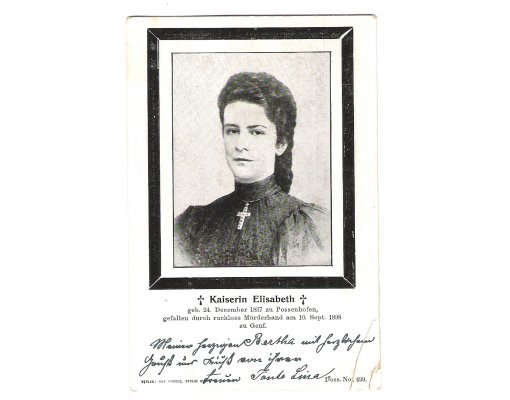 † Kaiserin Elisabeth †
geb. 24. December 1837 zu Possenhofen,
gefallen durch ruchlose Mörderhand am 10. Sept. 1898
zu Genf.
Meiner herzigen Bertha mit herzlichem
Gruß und Kuß von ihrer
treuen Tante Lina
VERLAG BERLIN
Dess. No. 499.